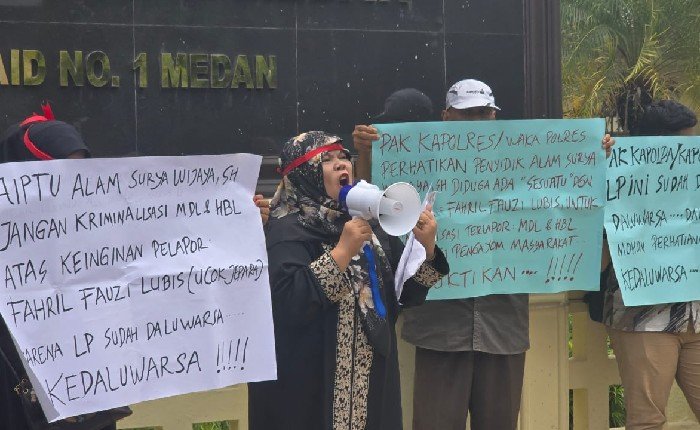 AID NO. 1 MEDAN
AIPTU ALAM SURYA WIJAYA, SH
JANGAN KRIMINALISASI MDL & HBL
ATAS KEINGINAN PELAPOR.
FAHRIL FAUZI LUBIS (UCOK JEPARA)
ARENA LP SUDAH DALUWARSA.....
KEDALUWARSA !!!!!
PAK KAPOLRES/WAKA POLRES
PERHATIKAN PENYIDIK ALAM SURYA
SH DIDUGA ADA "SESUATU" DGN
FAHRIL FAUZI LUBIS, UNTUK
ASI TERLAPOR MDL & HBL
PENGAJOM MASYARAKAT
KTIKAN.... !!!!!
AK KAPOLDA/KAPO
LP INI SUDAH D
DALUWARSA....
MOHON PERHATIAN
KEDALUWARSA....